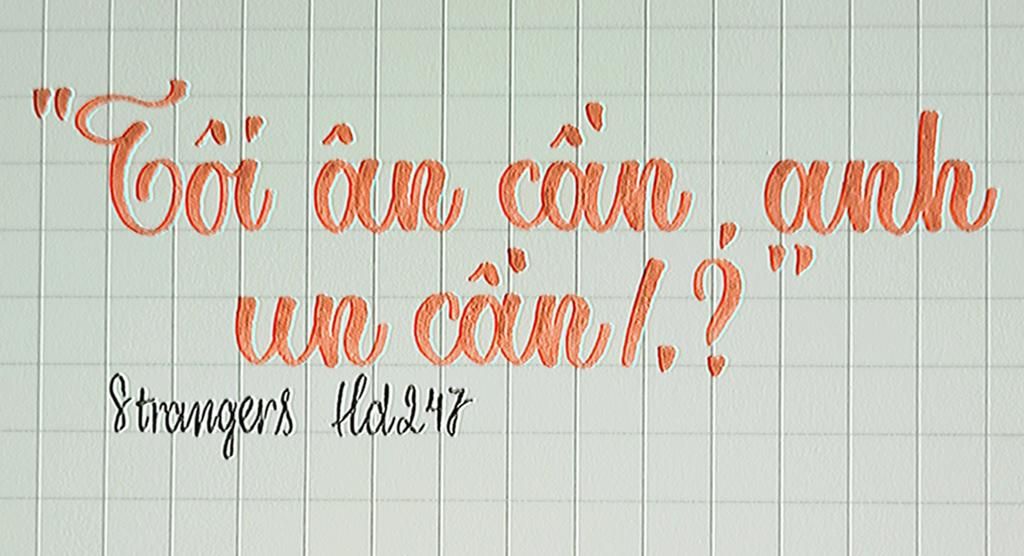 "Tôi ân cần, anh
un cần/.?"
Strangers Hd247